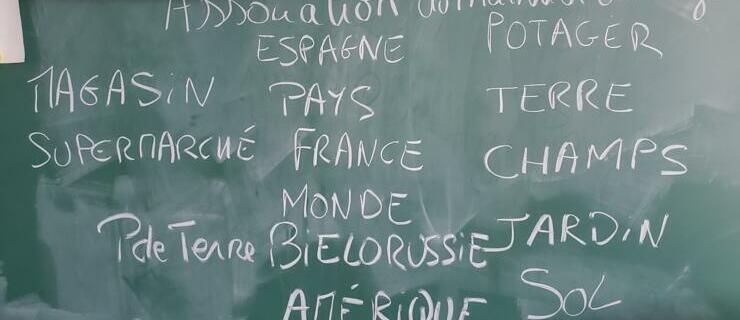 Association
ESPAGNE POTAGER
MAGASIN PAYS TERRE
SUPERMARCHÉ FRANCE CHAMPS
MONDE
P de Terre BIELORUSSIE JARDIN
AMÉRIQUE SOL